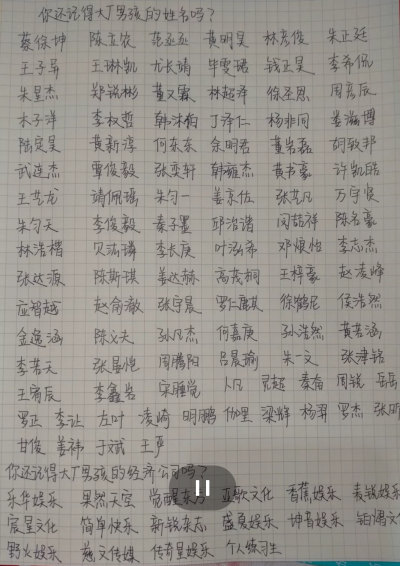 你还记得大厂男孩的姓名吗?
蔡徐坤 陈立农 范丞丞 黄明昊 林彦俊 朱正廷
王子异 王琳凯 尤长靖 毕雯珺 钱正昊 李希侃
朱星杰 郑锐彬 董又霖 林超泽 徐圣恩 周彦辰
木子洋 李权哲 韩沐伯 丁泽仁 杨非同 娄滋博
陆定昊 黄新淳 何东东 余明君 董岩磊 胡致邦
武连杰 覃俊毅 张奕轩 韩雍杰 黄书豪 许凯皓
王艺龙 靖佩瑶 朱匀一 姜京佐 张艺凡 万宇贤
朱匀天 李俊毅 秦子墨 邱治谐 闵喆祥 陈名豪
林浩楷 贝汯璘 李长庚 叶泓希 邓烺怡 李志杰
张达源 陈斯琪 姜达赫 高茂桐 王梓豪 赵凌峰
应智越 赵俞澈 张宇晨 罗仁麒 徐鹤尼 侯浩然
金逸涵 陈义夫 孙凡杰 何嘉庚 孙浩然 黄若涵
李若天 张晏恺 周腾阳 吕晨瑜 朱一文 张津铭
王宥辰 李鑫岩 宋睡觉 卜凡 灵超 秦奋 周锐 岳岳
罗正 李让 左叶 凌崎 明鹏 伽里 梁辉 杨羿 罗杰 张昕
甘俊 姜祎 于斌 王严
你还记得大厂男孩的经济公司吗?
乐华娱乐 果然天空 觉醒东方 亚歌文化 香蕉娱乐 麦锐娱乐
宸星文化 简单快乐 新锐东态 盛夏娱乐 坤音娱乐 铂熠文
野火娱乐 慈文传媒 传奇星娱乐 个人练习生